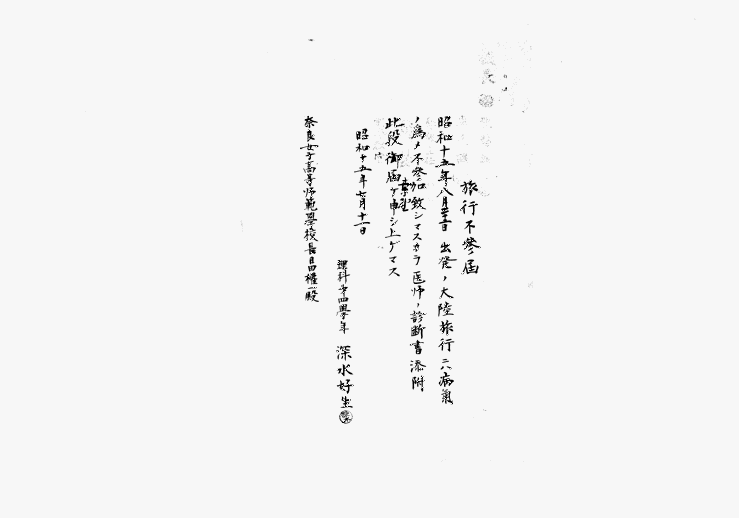 旅行不參屆
昭和十五年八月 出発ノ大陸旅行ニハ病氣
ノ爲メ不參加致シマスカラ医師ノ診断書添附
此段御届ケ申シ上ゲマス
昭和十五年七月十一日
理科第四學年 深水好生
奈良女子高等師範學校長 殿